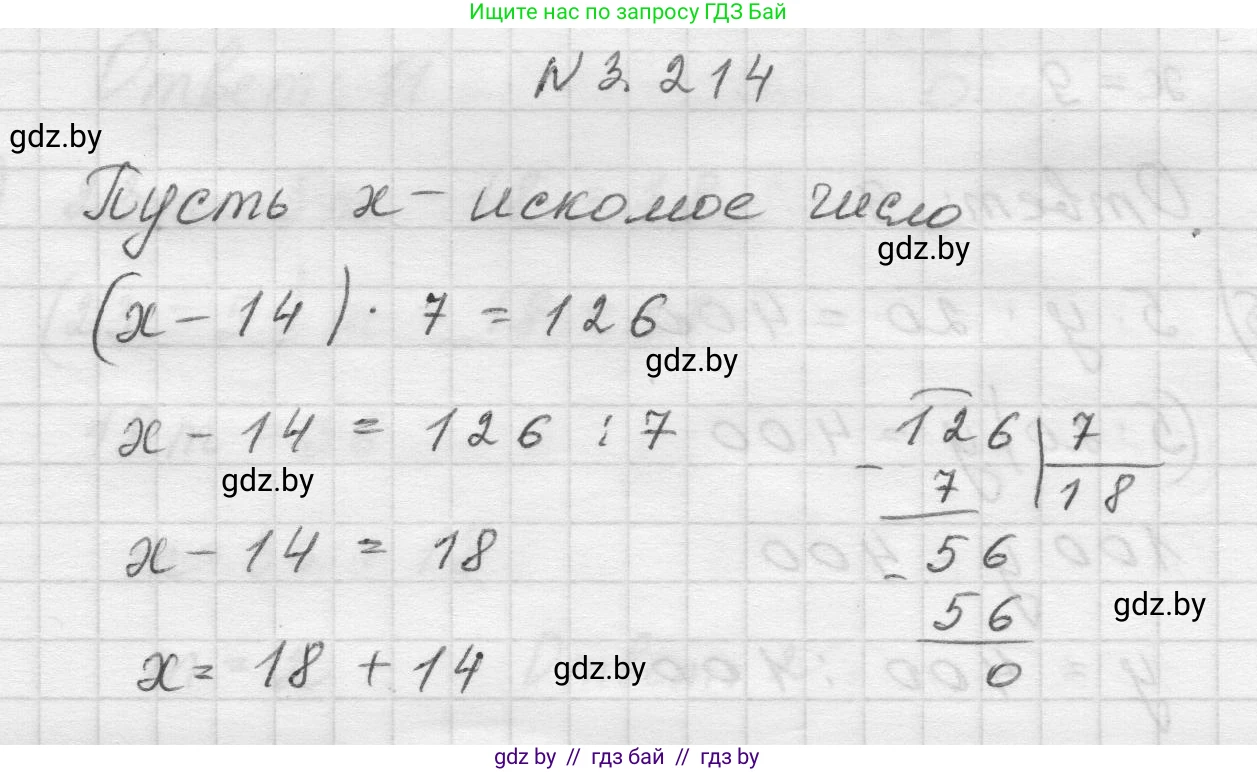 Ищите нас по запросу ГДЗ Бай
N 3. 214
gdz.by
Пусть x - искомое число
gdz.by
(x - 14) · 7 = 126
gdz.by
x - 14 = 126 : 7
126 | 7
gdz.by
- 7
18
x - 14 = 18
- 56
56
gdz.by
x = 18 + 14
gdz.by
0
gdz.by // гдз бай // гдз by